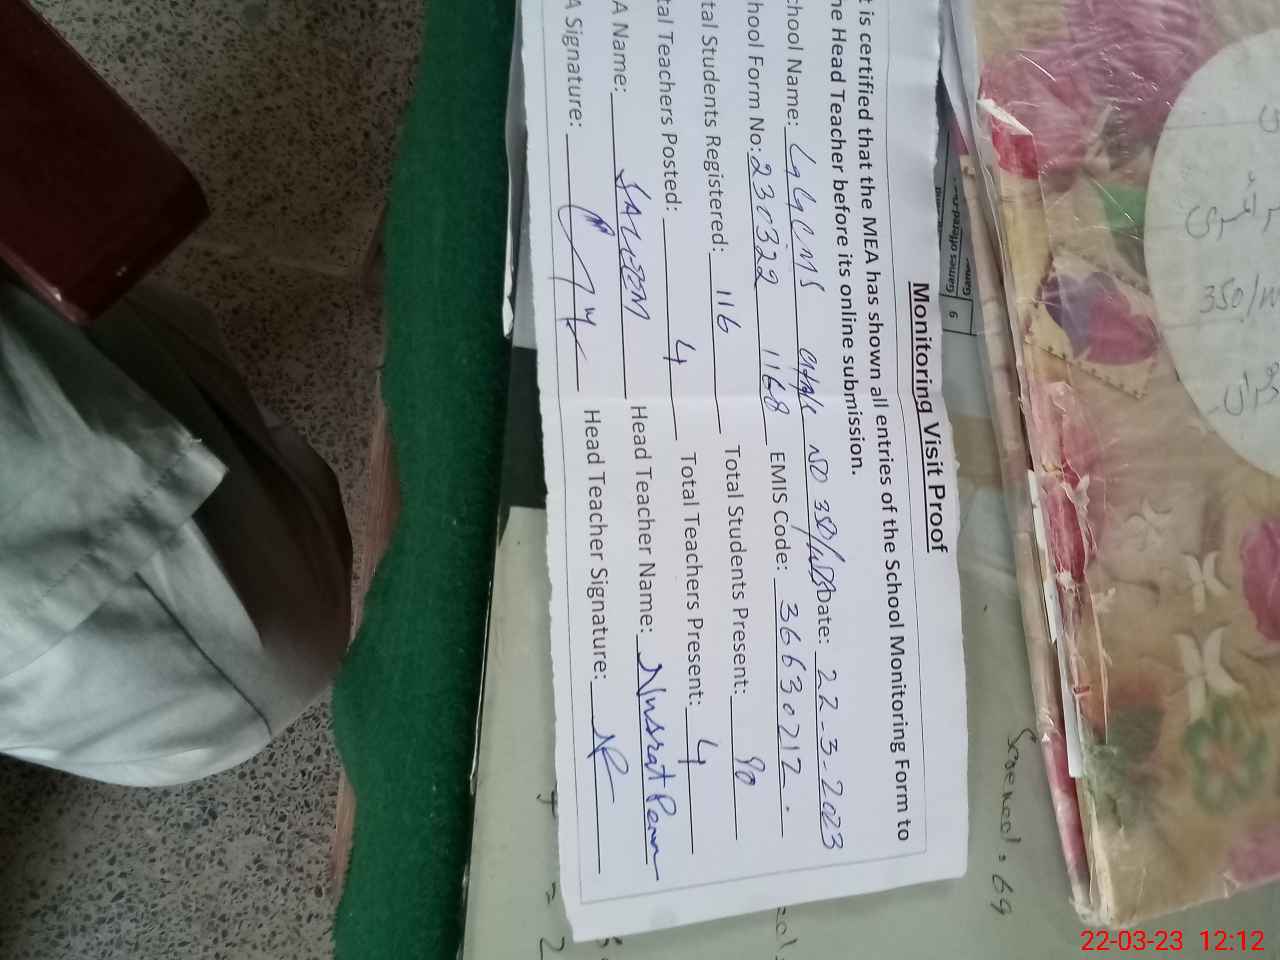 Monitoring Visit Proof
t is certified that the MEA has shown all entries of the School Monitoring Form to
he Head Teacher before its online submission.
chool Name: GGCMS NO 350/WB Date: 22-3-2023
hool Form No: 230322 1168 EMIS Code: 36630212.
tal Students Registered: 116 Total Students Present: 90
tal Teachers Posted: 4 Total Teachers Present: 4
A Name: SALEEM Head Teacher Name: Nusrat
A Signature: Head Teacher Signature: NP
6
350/W
22-03-23 12:12